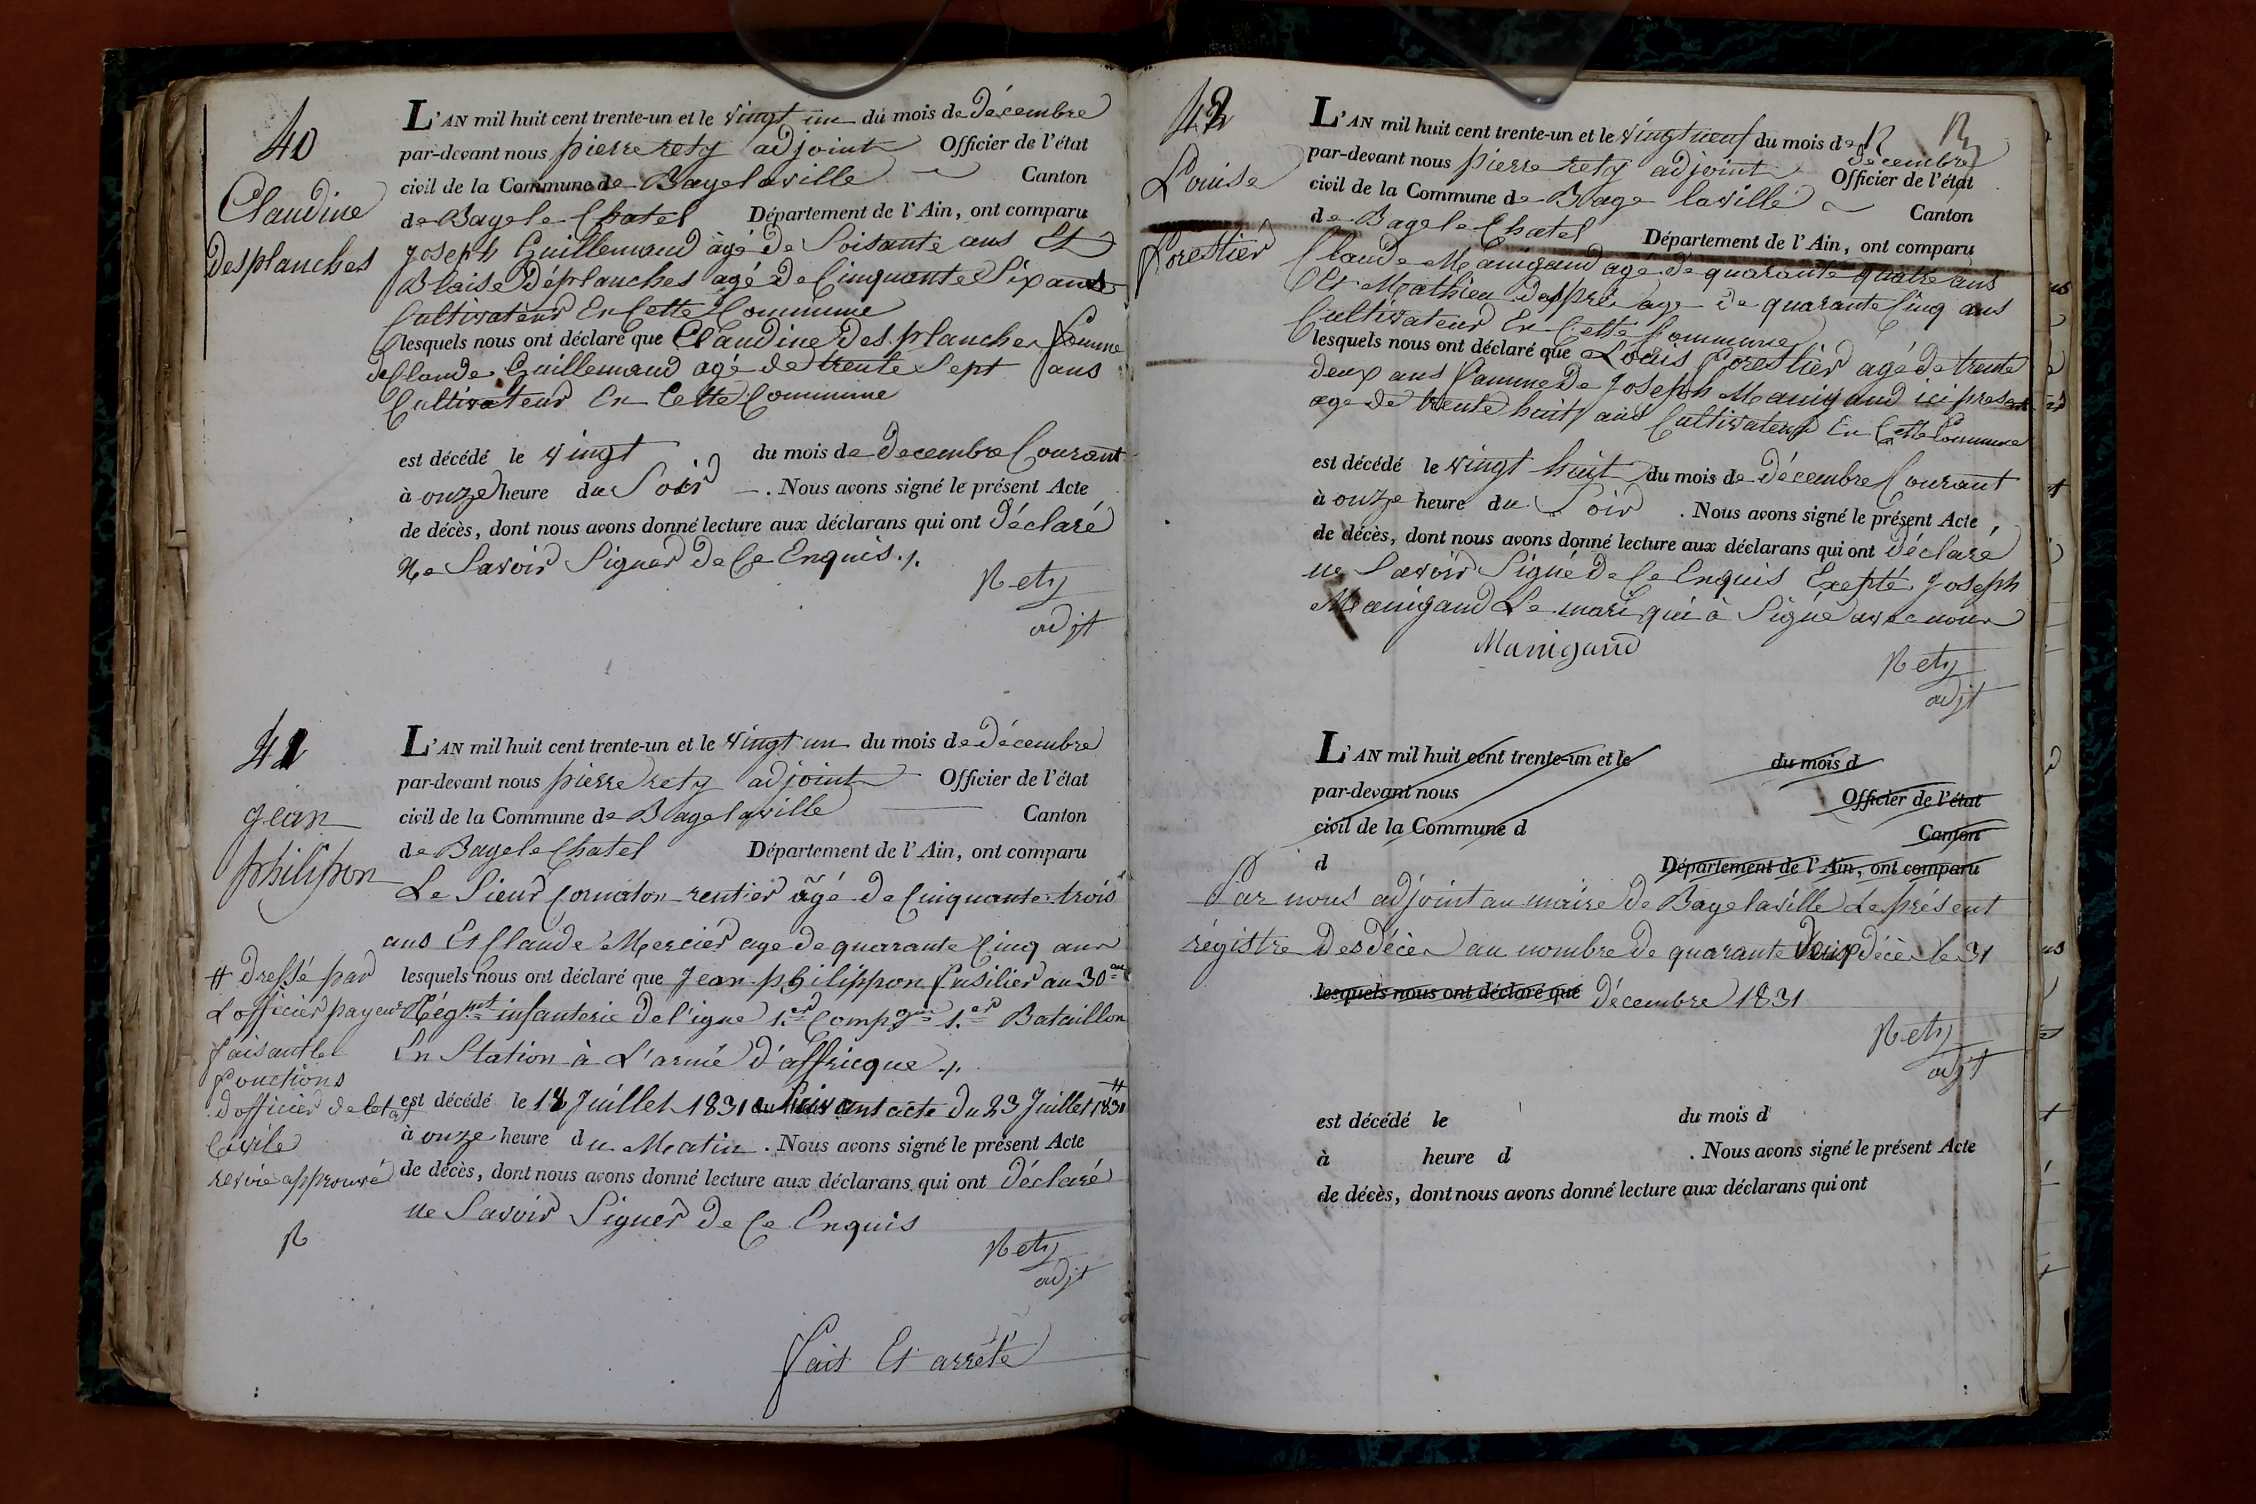 40
Claudine
desplanches
L'AN mil huit cent trente-un et le vingt un du mois de décembre
par-devant nous pierre rety adjoint Officier de l'état
civil de la Commune de Bagelaville Canton
de Bagele Chatel Département de l'Ain, ont comparu
joseph Guillemaud àgé de Soisante ans Et
Blaise Déplanches agé de Cinquante Six ans
Cultivateur En Cette Commune
lesquels nous ont déclaré que Claudine Des planches famme
de Claude Guillemaud agé de trente Sept ans
Cultivateur En Cette Commune
est décédé le vingt du mois de decembre Courant
à onze heure du Soir . Nous avons signé le présent Acte
de décès, dont nous avons donné lecture aux déclarans qui ont Déclaré
Ne Savoir Signer de Ce Enquis ./.
Rety
adjt
41
jean
philipon
L'AN mil huit cent trente-un et le vingt un du mois de décembre
par-devant nous pierre rety adjoint Officier de l'état
civil de la Commune de Bagelaville Canton
de Bagele Chatel Département de l'Ain, ont comparu
Le Sieur Cornaton rentier àgé de Cinquante trois
ans Et Claude Mercier age de quarante Cinq ans
lesquels nous ont déclaré que Jean philippon fusilier au 30
Régmt infanterie De l'igne 1.er Compgnie 1.er Bataillon
En Station à L'armé d'affricque ./.
est décédé le 18 Juillet 1831 Suivant acte Du 23 Juillet 1831 #
à onze heure du Matin . Nous avons signé le présent Acte
de décès, dont nous avons donné lecture aux déclarans qui ont Déclaré
ne Savoir Signer de Ce Enquis
Rety
adjt
# dressé par
L officier payeur
faisant les
fonctions
d officier de letat
Civile
renvoi approuvé
R
fait Et arrété
42
Louise
forestier
L'AN mil huit cent trente-un et le vingt neuf du mois de R
décembre
par-devant nous pierre rety adjoint Officier de l'état
civil de la Commune de Bage laville Canton
de Bagele Chatel Département de l'Ain, ont comparu
Claude Manigaud agé de quarante quatre ans
Et Mathieu despré age de quarante Cinq ans
Cultivateur En Cette Commune
lesquels nous ont déclaré que Louis forestier agé de trente
deux ans famme de joseph Manigaud ici present
age de trente huit ans Cultivateur En Cette Commune
est décédé le vingt huit du mois de décembre Courant
à onze heure du Soir . Nous avons signé le présent Acte
de décès, dont nous avons donné lecture aux déclarans qui ont déclaré
ne Savoir Signé de Ce Enquis Exepté joseph
Manigaud Le mari qui à Signé avec nous
Manigaud
Rety
adjt
L'AN mil huit cent trente-un et le du mois d
par-devant nous Officier de l'état
civil de la Commune d Canton
d Département de l'Ain, ont comparu
Par nous adjoint au maire de Bagelaville Le présent
régistre Des décès au nombre de quarante Deux décès le 31
lesquels nous ont déclaré que décembre 1831
Rety
adjt
est décédé le du mois d
à heure d . Nous avons signé le présent Acte
de décès, dont nous avons donné lecture aux déclarans qui ont